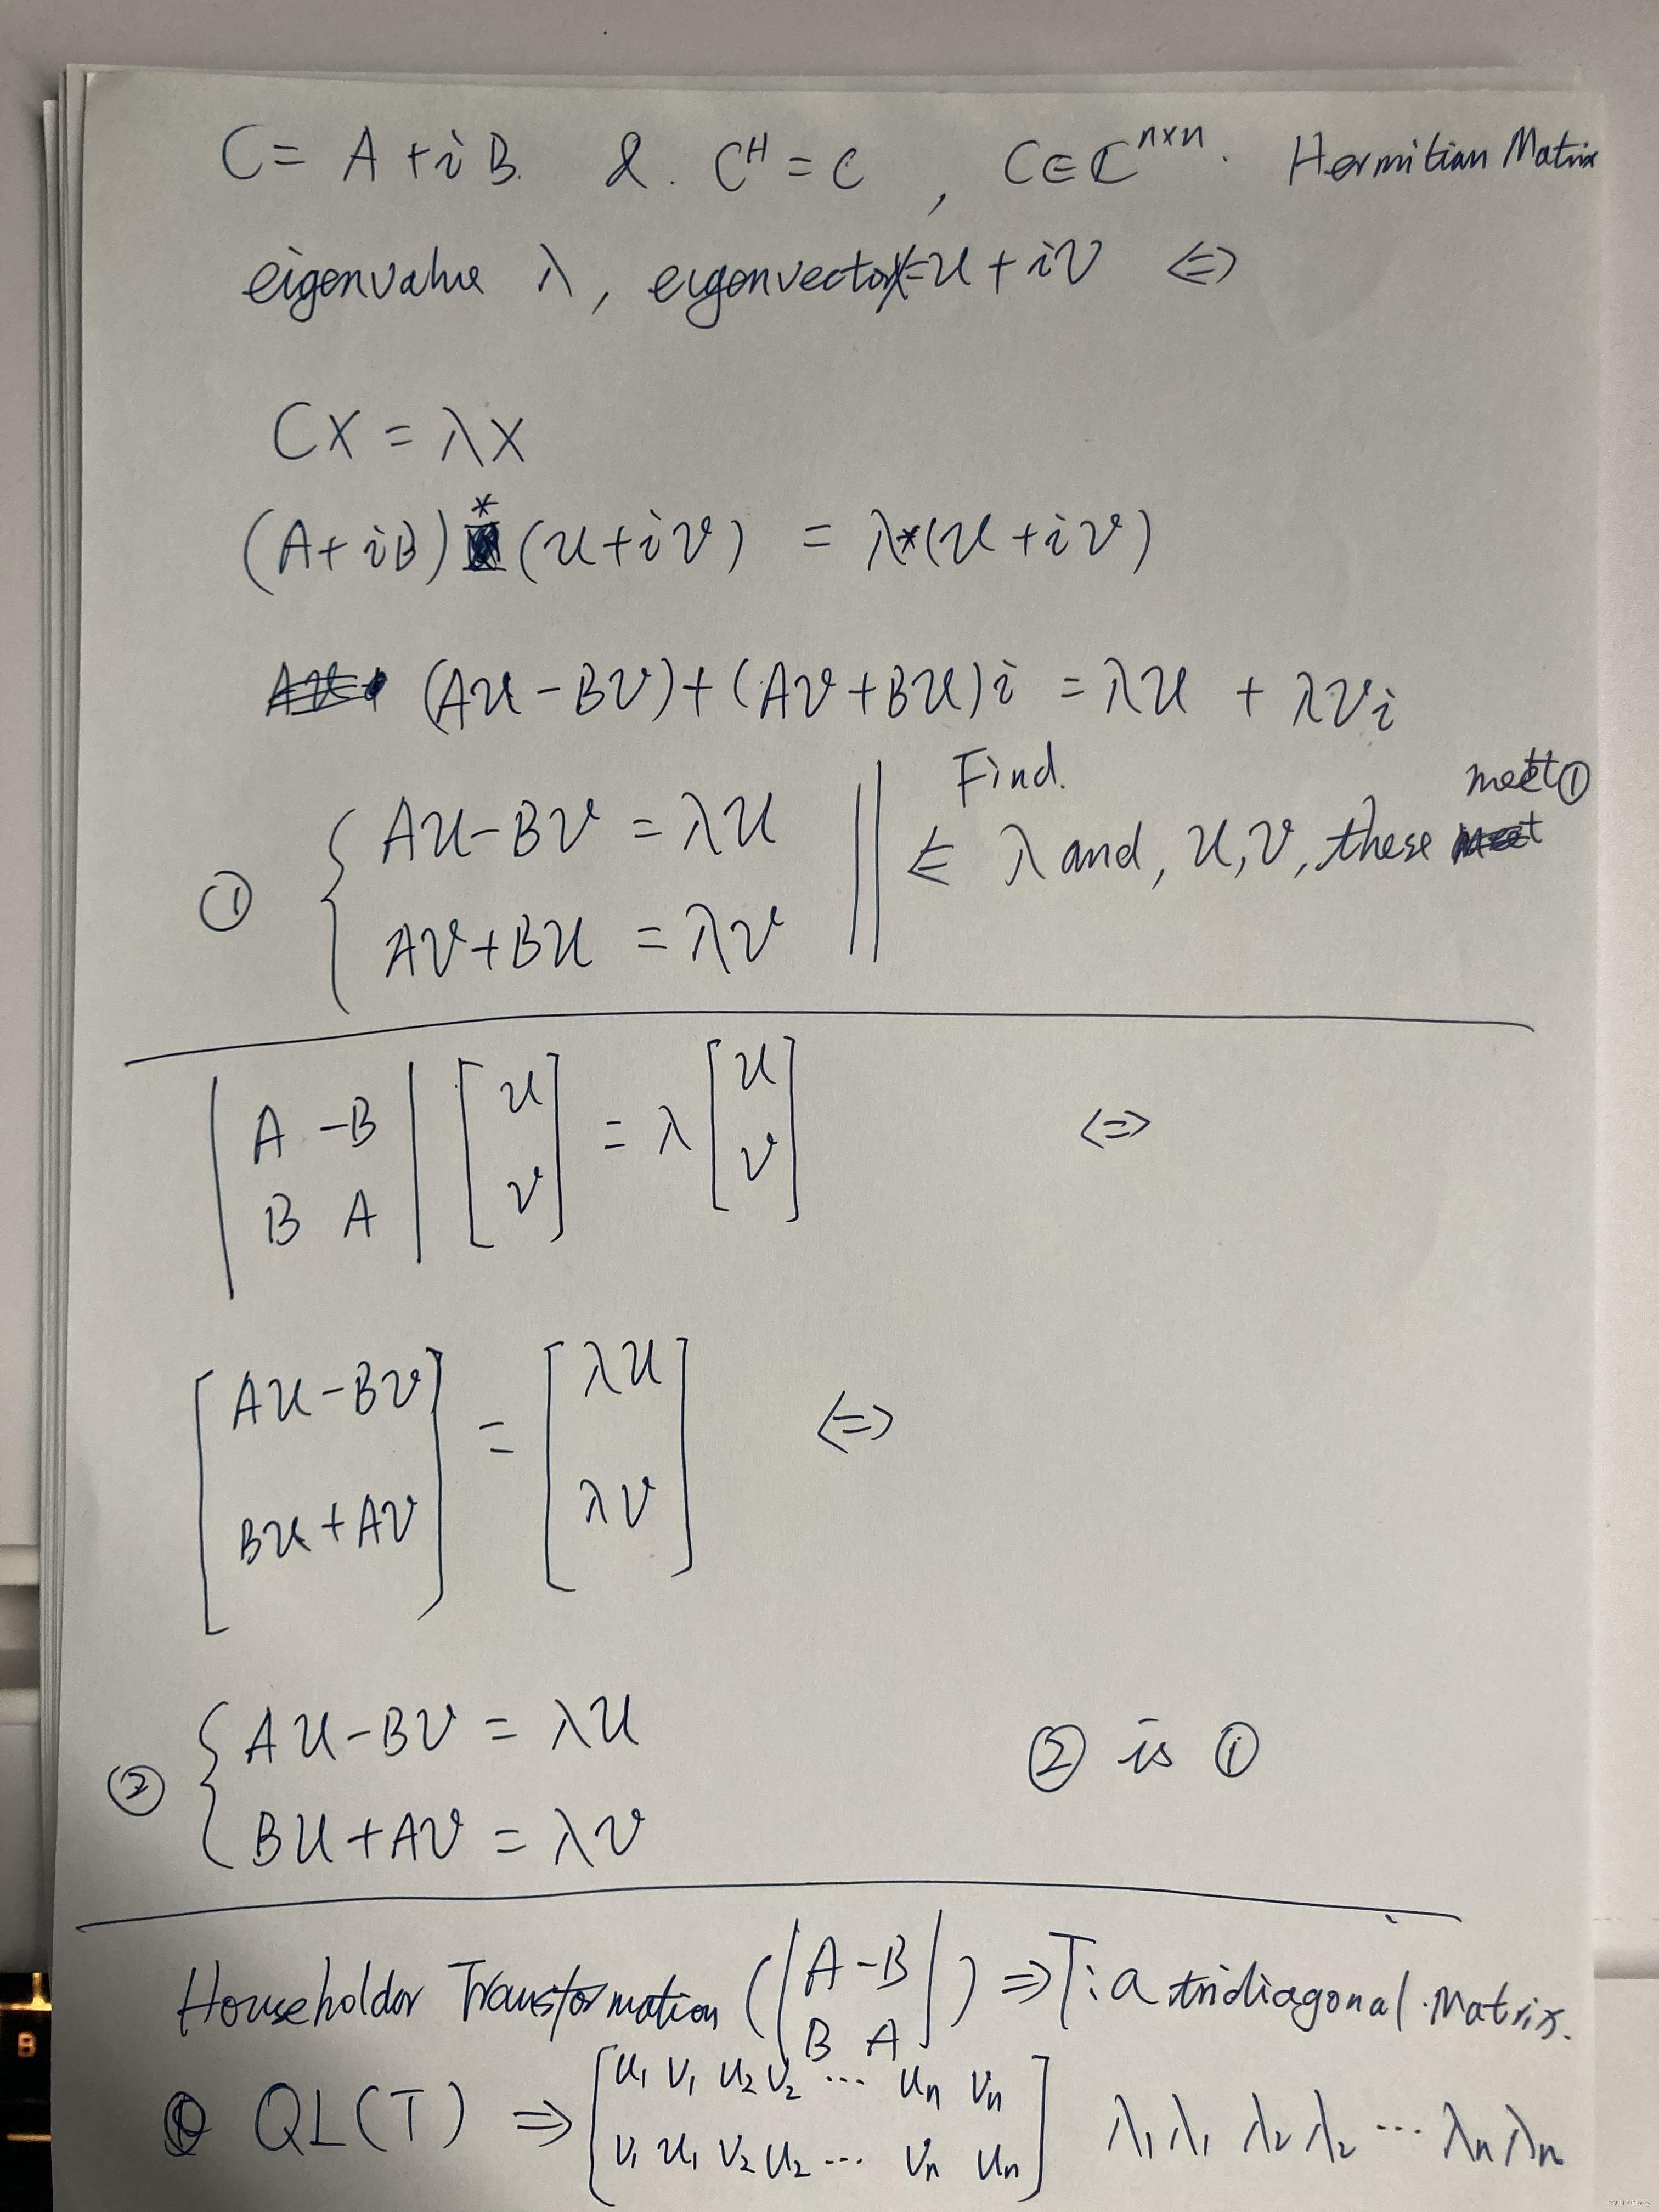 C = A + iB. & . C^H = C , C ∈ ℂ^{n×n}. Hermitian Matrix
eigenvalue λ, eigenvector X = u + iv ⇔
CX = λX
(A + iB) * (u + iv) = λ*(u + iv)
(Au - Bv) + (Av + Bu)i = λu + λvi
① { Au - Bv = λu
Av + Bu = λv
Find.
⇐ λ and, u, v, these meet ①
| A -B | [ u ] = λ [ u ] ⇔
| B A | [ v ] [ v ]
[ Au - Bv ] = [ λu ] ⇔
[ Bu + Av ] [ λv ]
② { Au - Bv = λu
Bu + Av = λv
② is ①
Householder Transformation (| A -B |) ⇒ T: a tridiagonal. Matrix.
B A
QL(T) ⇒ [ u₁ v₁ u₂ v₂ ... uₙ vₙ ] λ₁ λ₁ λ₂ λ₂ ... λₙ λₙ
[ v₁ u₁ v₂ u₂ ... vₙ uₙ ]
B
CSDN @Eloudy